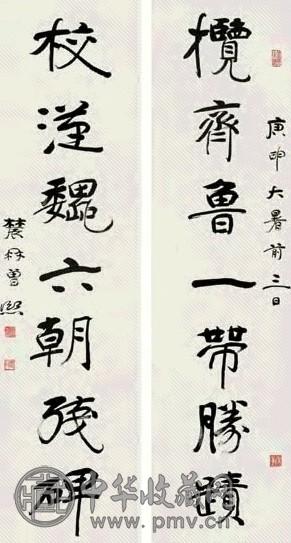 欖齊魯一帶勝蹟
庚申大暑前三日
校漢魏六朝殘碑
農髯曾熙
中华收藏网
www.pmv.cn